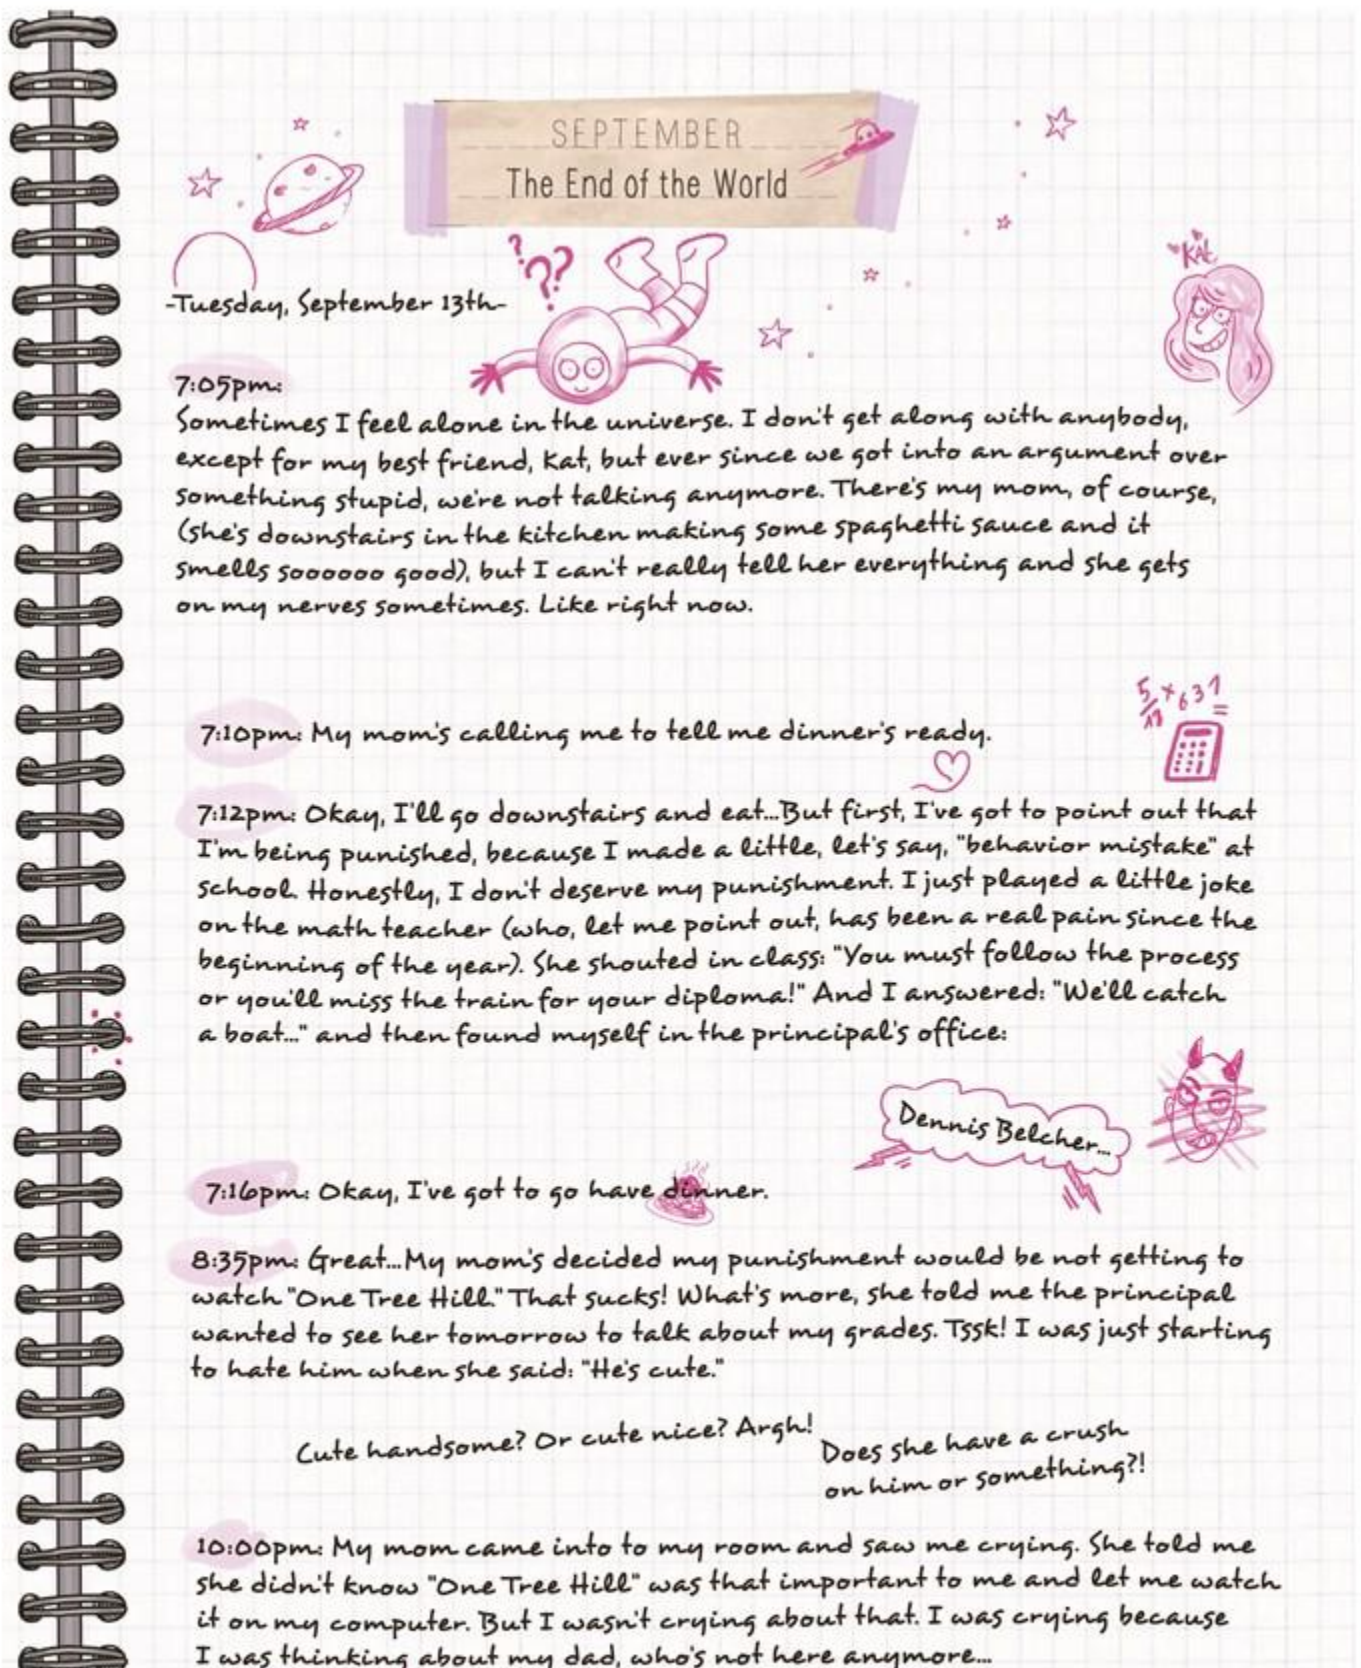 SEPTEMBER
The End of the World
KAt
-Tuesday, September 13th-
???
7:05pm:
Sometimes I feel alone in the universe. I don't get along with anybody,
except for my best friend, Kat, but ever since we got into an argument over
something stupid, we're not talking anymore. There's my mom, of course,
(she's downstairs in the kitchen making some spaghetti sauce and it
smells soooooo good), but I can't really tell her everything and she gets
on my nerves sometimes. Like right now.
5/13 x 631 =
7:10pm: My mom's calling me to tell me dinner's ready.
7:12pm: Okay, I'll go downstairs and eat...But first, I've got to point out that
I'm being punished, because I made a little, let's say, "behavior mistake" at
school. Honestly, I don't deserve my punishment. I just played a little joke
on the math teacher (who, let me point out, has been a real pain since the
beginning of the year). She shouted in class: "You must follow the process
or you'll miss the train for your diploma!" And I answered: "We'll catch
a boat..." and then found myself in the principal's office:
Dennis Belcher...
7:16pm: Okay, I've got to go have dinner.
8:35pm: Great...My mom's decided my punishment would be not getting to
watch "One Tree Hill." That sucks! What's more, she told me the principal
wanted to see her tomorrow to talk about my grades. Tssk! I was just starting
to hate him when she said: "He's cute."
Cute handsome? Or cute nice? Argh!
Does she have a crush
on him or something?!
10:00pm: My mom came into to my room and saw me crying. She told me
she didn't know "One Tree Hill" was that important to me and let me watch
it on my computer. But I wasn't crying about that. I was crying because
I was thinking about my dad, who's not here anymore...